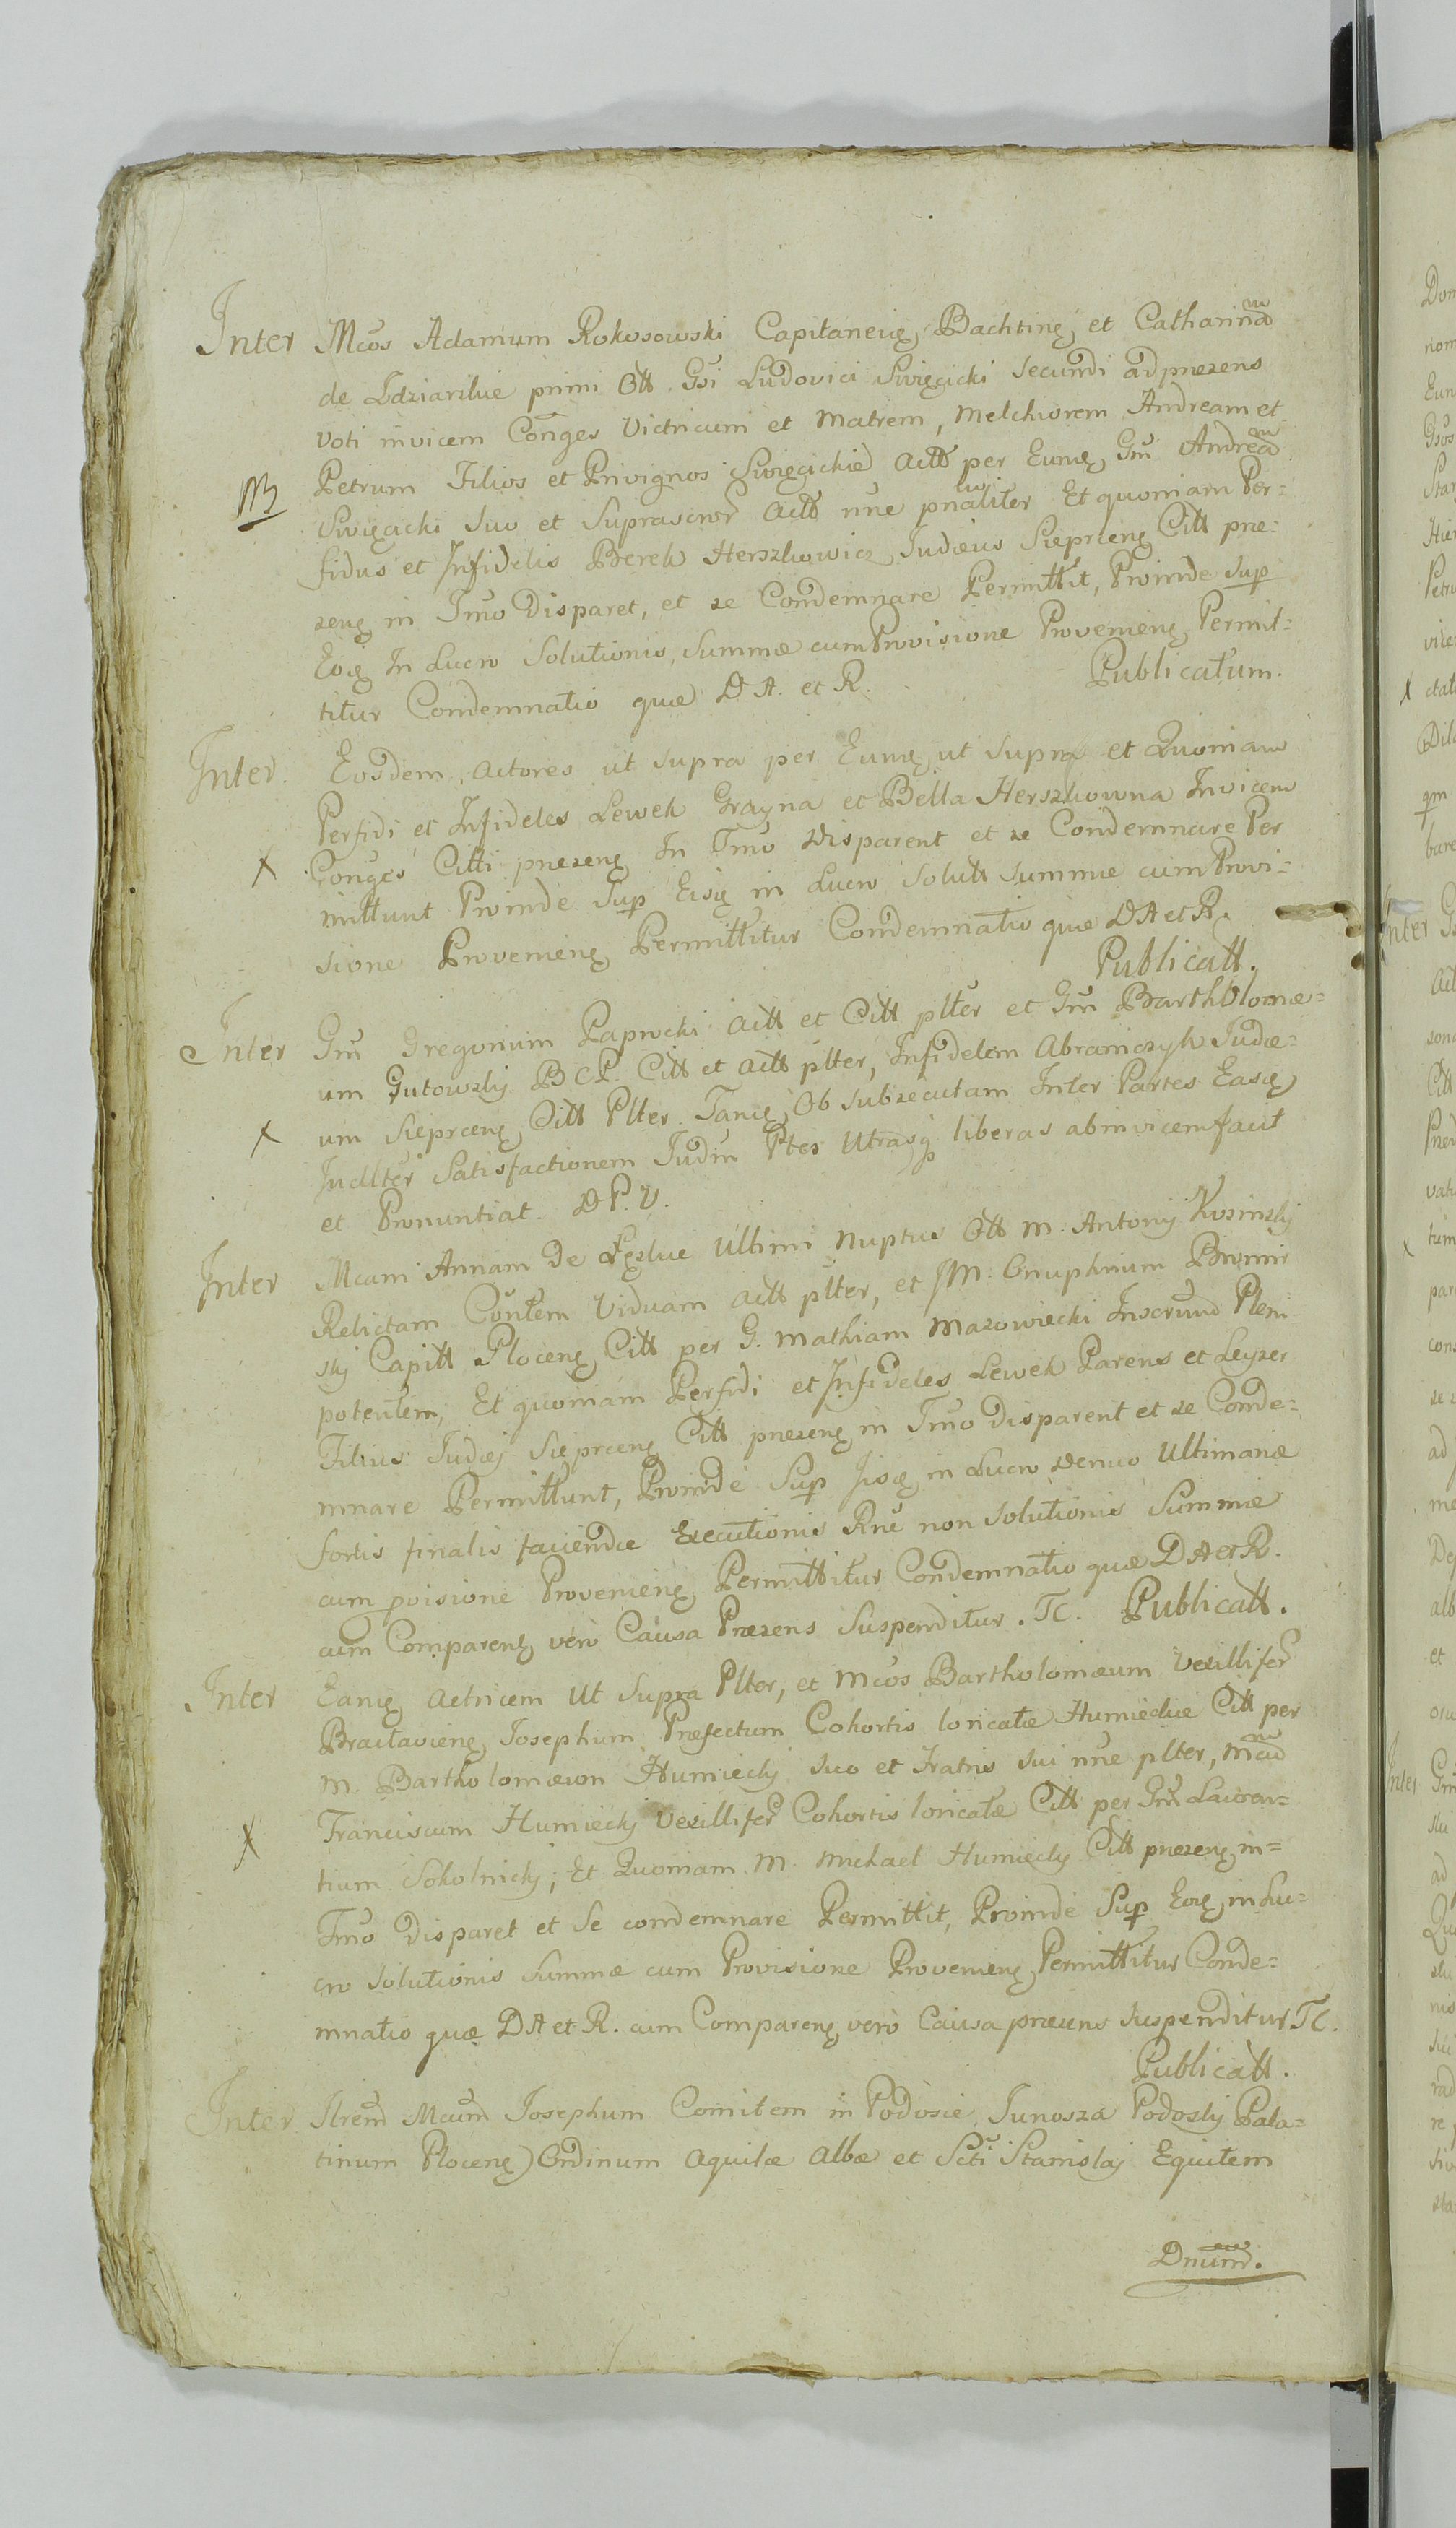 Inter Mcos Adamum Rokosowski Capitaneię Bachtinę et Catharinam
de primi Ott Gsi Ludovici Swięcicki secundi ad prezens
voti invicem Conges Victricum et Matrem, Melchiorem Andream et
Petrum Filios et Privignos Swięcickie Actt per Eumę Gm Andream
Swięcicki suo et suprascror Actt nne pnaliter Et quoniam Per=
fidus et Infidelis Berek Herszkowicz Judæus Sieprcenę Citt pre=
zenę in Tmo Disparet, et se Condemnare Permittit, Proinde Sup
Eoię In Lucro Solutionis, Summæ cum Provisione Provenienę Permit=
titur Condemnatio quæ D A. et R.
Publicatum.
Inter Eosdem, Actores ut supra per Eumę ut supra et Quoniam
Perfidi et Infideles Lewek Grayna et Bella Herszkowna Invicem
X Conges Citti prezenę In Tmo Disparent et se Condemnare Per
mittunt Proinde Sup Eisię in Lucro Solutt Summæ cum Provi=
sione Provenienę Permittitur Condemnatio quæ D A et R.
Publicatt.
Inter Gm Gregorium Paprocki Actt et Citt plter et Gm Bartholomæ=
um Gutowskij B C P. Citt et Actt plter, Infidelem Abramczyk Judæ=
X um Sieprcenę Citt Plter. Tanię Ob subsecutam Inter Partes Easię
Judlter Satisfactionem Judm Ptes Utrasq liberas abinvicem facit
et Pronuntiat. D P. V.
Inter Mcam Annam De Ultimi Nuptus Ott M. Antonij Kosinskij
Relictam Contem Viduam Actt plter, et M. Onuphrium
skij Capitt Plocenę Citt per G. Mathiam Mazowiecki Inscrum Pleni
potentem, Et quoniam Perfidi et Infideles Lewek Parens et Leyzer
Filius Judæi Sieprcenę Citt prezenę in Tmo Disparent et se Conde=
mnare Permittunt, Proinde Sup Iisię in Lucro Denuo Ultimariæ
fortis finalis faciendæ Executionis Rne non Solutionis Summæ
cum pvisione Provenienę Permittitur Condemnatio quæ D A et R.
cum Comparenę vero Causa Præzens Suspenditur. TC. Publicatt.
Inter Eanię Actricem Ut Supra Plter, et Mcos Bartholomæum Vexillifer
Braclavienę Josephum Præfectum Cohortis loricatæ Humieckie Citt per
M. Bartholomæum Humieckij suo et Fratris sui nne plter, Mcum
X Franciscum Humieckij Vexillifer Cohortis loricatæ Citt per Gm Lauren=
tium Sokolnickij; Et Quoniam M. Michael Humieckij Citt prezenę in=
Tmo Disparet et Se condemnare Permittit, Proinde Sup Eoię in Lu=
cro Solutionis Summæ cum Provisione Provenienę Permittitur Conde=
mnatio quæ D A et R. cum Comparenę vero Causa præzens suspenditur TC.
Publicatt.
Inter Ilrem Mcum Josephum Comitem in Podosie, Junosza Podoskij Pala=
tinum Plocenę Ordinum Aquilæ Albæ et Scti Stanislai Equitem
Dnum.